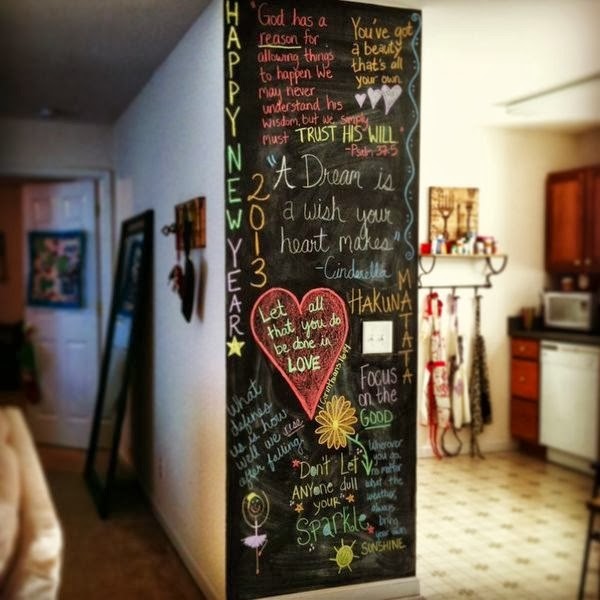 HAPPY NEW YEAR
2013
"God has a
reason for
allowing things
to happen We
may never
understand his
wisdom, but we simply
must TRUST HIS WILL
-Psalm 37:5
You've got
a beauty
that's all
your own
"A Dream is
a wish your
heart makes"
-Cinderella
HAKUNA
MATATA
Let all
that you do
be done in
LOVE
Corinthians 16:14
Focus
on the
GOOD
What
defines
us is how
well we rise
after falling
Don't Let
ANYone dull
your
Sparkle
Wherever
you go,
no matter
what the
weather,
always
bring
your own
SUNSHINE